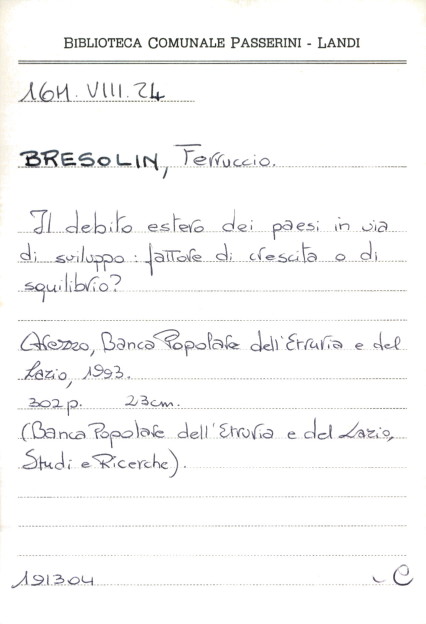 BIBLIOTECA COMUNALE PASSERINI - LANDI
16H. VIII. 24
BRESOLIN, Ferruccio.
Il debito estero dei paesi in via
di sviluppo: fattore di crescita o di
squilibrio?
Arezzo, Banca Popolare dell'Etruria e del
Lazio, 1993.
302 p. 23 cm.
(Banca Popolare dell'Etruria e del Lazio,
Studi e Ricerche).
191304 C